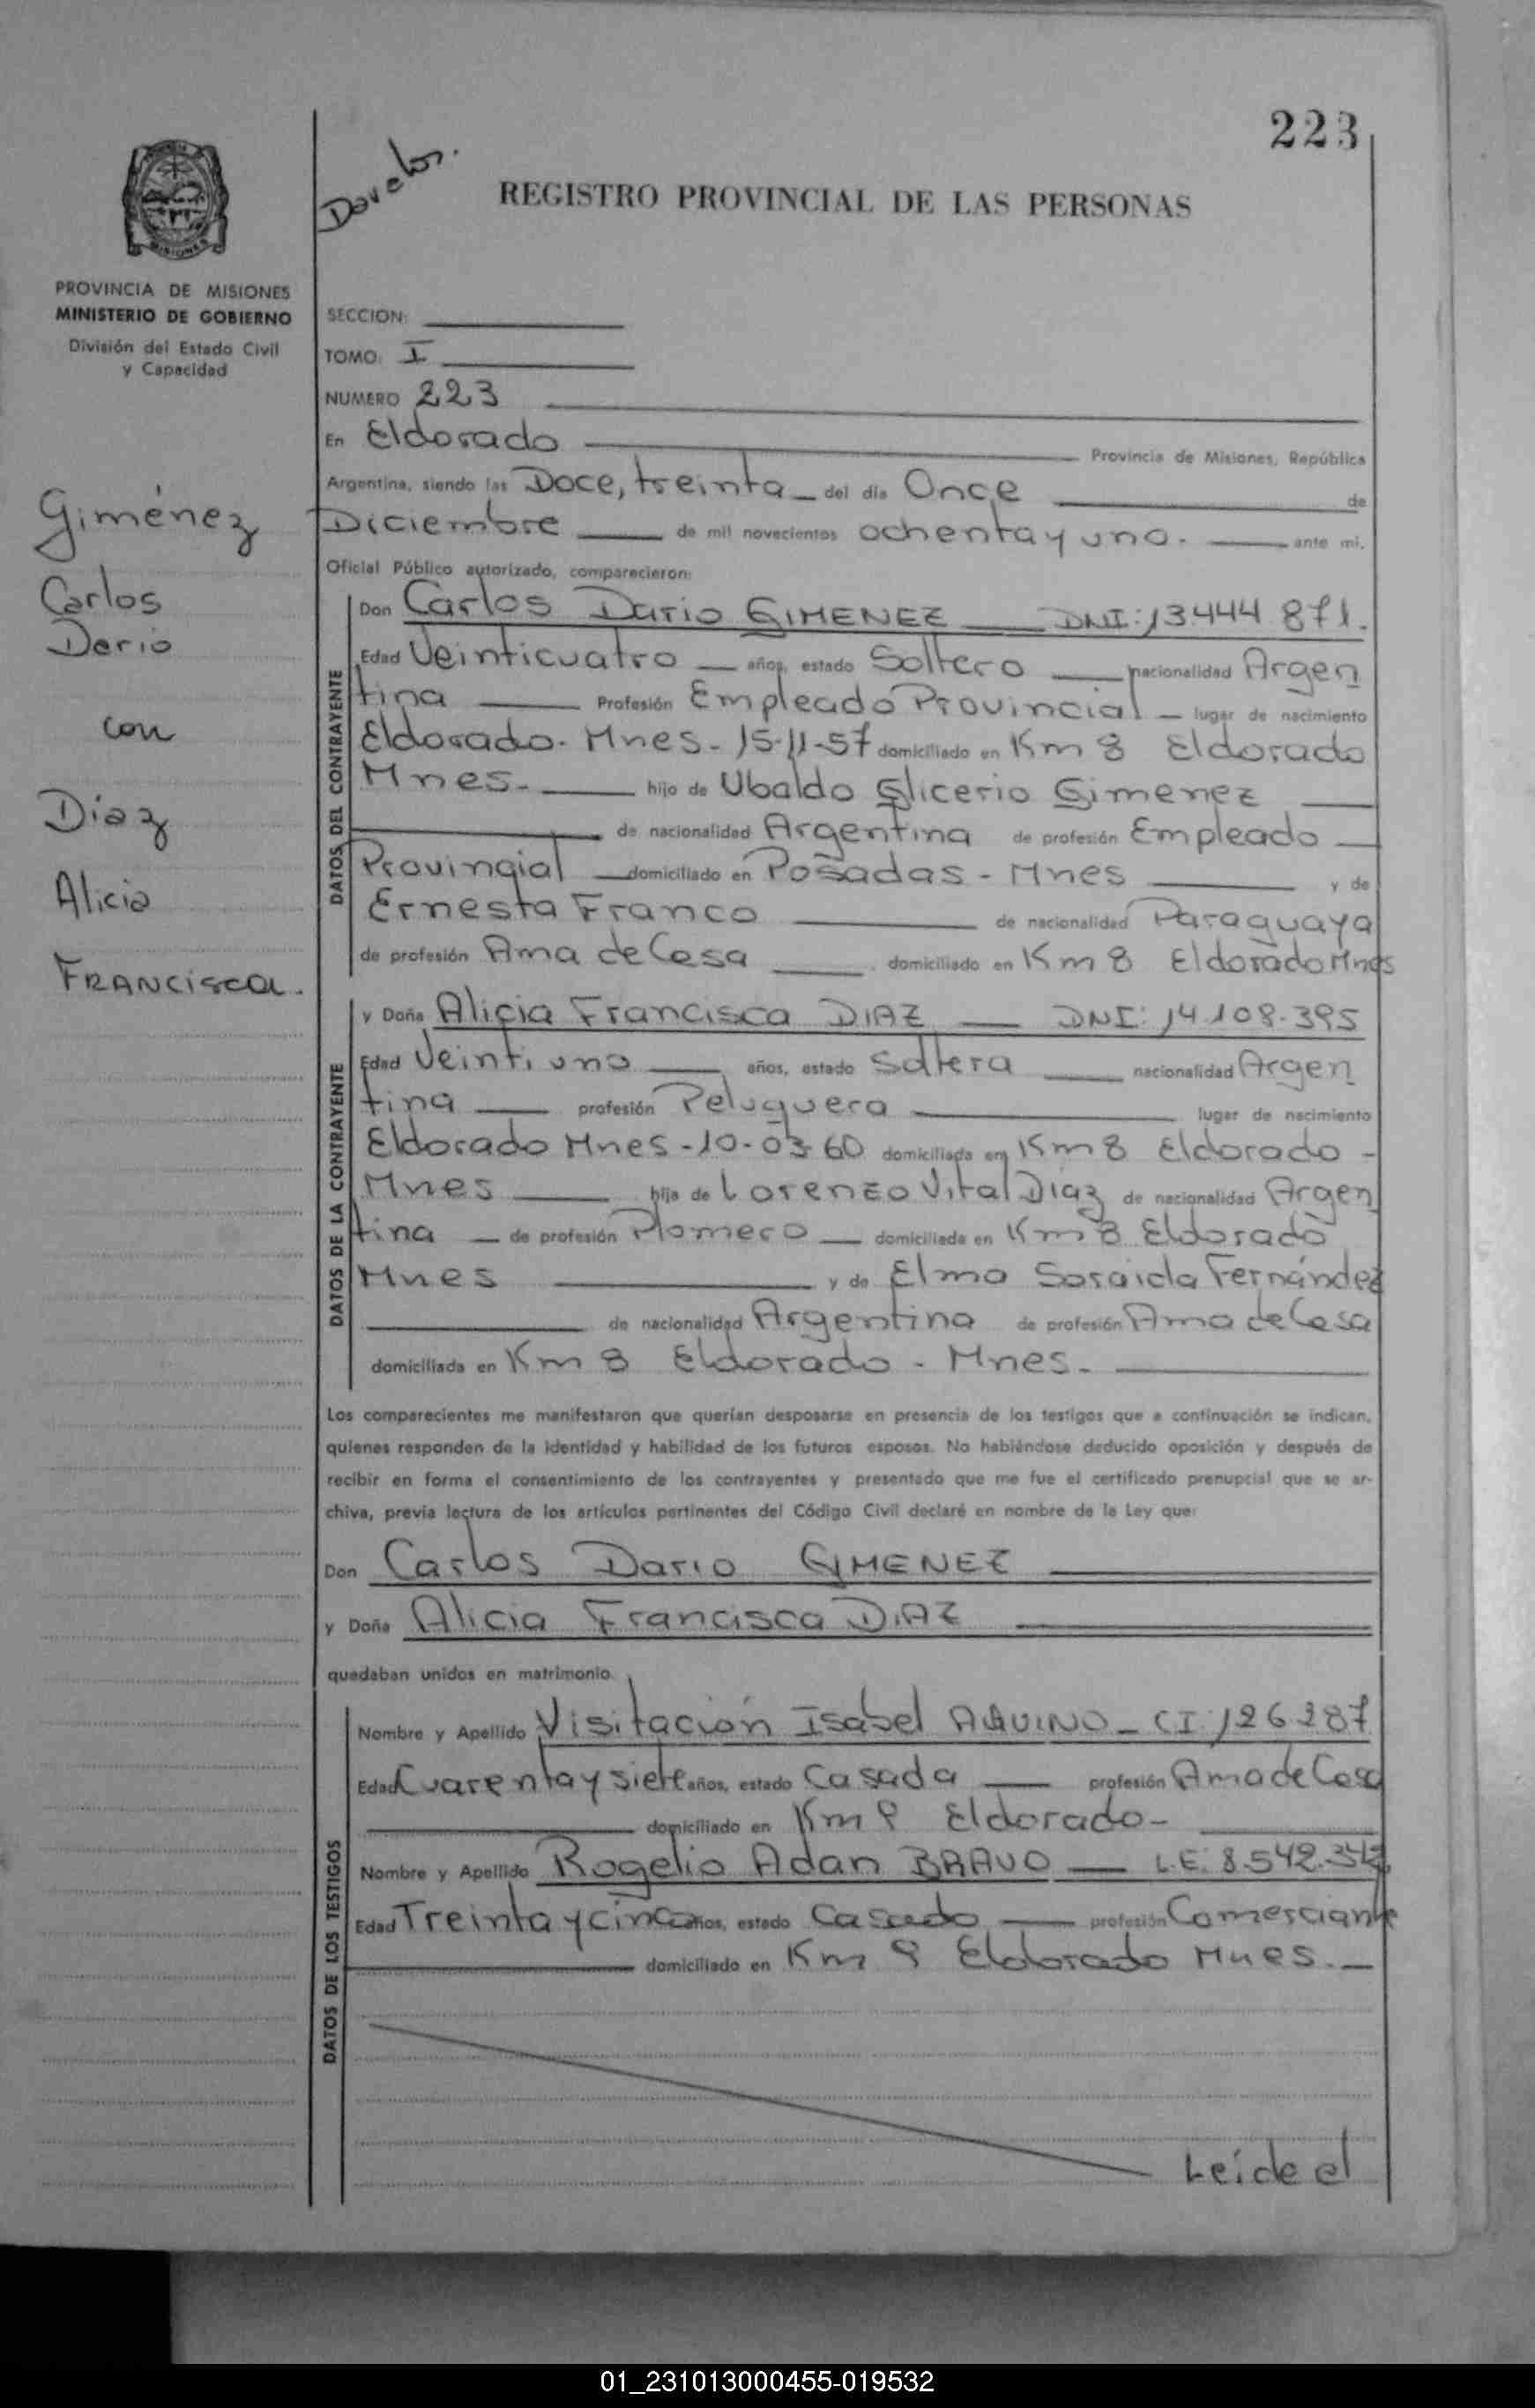 223
Davelos.
REGISTRO PROVINCIAL DE LAS PERSONAS
MISIONES
PROVINCIA DE MISIONES
MINISTERIO DE GOBIERNO
División del Estado Civil
y Capacidad
Giménez
Carlos
Dario
con
Diaz
Alicia
FRANCISCA.
SECCION:
TOMO: I
NUMERO 223
En Eldorado Provincia de Misiones, República
Argentina, siendo las Doce, treinta del día Once de
Diciembre de mil novecientos ochenta y uno. ante mi,
Oficial Público autorizado, comparecieron:
DATOS DEL CONTRAYENTE
Don Carlos Dario GIMENEZ DNI: 13.444.871.
Edad Veinticuatro años, estado Soltero nacionalidad Argen
tina Profesión Empleado Provincial lugar de nacimiento
Eldorado. Mnes - 15-11-57 domiciliado en Km 8 Eldorado
Mnes. hijo de Ubaldo Glicerio Gimenez
de nacionalidad Argentina de profesión Empleado
Provincial domiciliado en Posadas - Mnes y de
Ernesta Franco de nacionalidad Paraguaya
de profesión Ama de Casa domiciliado en Km 8 Eldorado Mnes
DATOS DE LA CONTRAYENTE
y Doña Alicia Francisca DIAZ DNI: 14.108.395
Edad Veintiuno años, estado Soltera nacionalidad Argen
tina profesión Peluquera lugar de nacimiento
Eldorado Mnes - 10-03-60 domiciliada en Km 8 Eldorado -
Mnes hija de Lorenzo Vital Diaz de nacionalidad Argen
tina de profesión Plomero domiciliada en Km 8 Eldorado
Mnes y de Elma Soraida Fernández
de nacionalidad Argentina de profesión Ama de Casa
domiciliada en Km 8 Eldorado - Mnes.
Los comparecientes me manifestaron que querían desposarse en presencia de los testigos que a continuación se indican,
quienes responden de la identidad y habilidad de los futuros esposos. No habiéndose deducido oposición y después de
recibir en forma el consentimiento de los contrayentes y presentado que me fue el certificado prenupcial que se ar-
chiva, previa lectura de los artículos pertinentes del Código Civil declaré en nombre de la Ley que:
Don Carlos Dario GIMENEZ
y Doña Alicia Francisca DIAZ
quedaban unidos en matrimonio.
DATOS DE LOS TESTIGOS
Nombre y Apellido Visitación Isabel AQUINO - CI: 126287
Edad Cuarenta y siete años, estado Casada profesión Ama de Casa
domiciliado en Km 9 Eldorado -
Nombre y Apellido Rogelio Adan BRAVO L.E: 8.542.342
Edad Treinta y cinco años, estado Casado profesión Comerciante
domiciliado en Km 9 Eldorado Mnes.
Leíde el
01_231013000455-019532